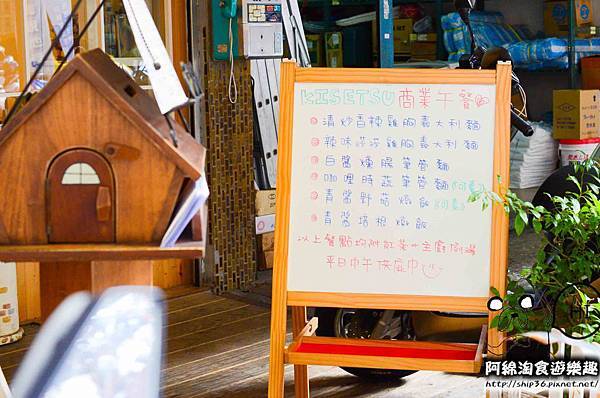 KISETSU 商業午餐
清炒香辣雞胸義大利麵
辣味莎莎雞胸義大利麵
白醬燻腸筆管麵
咖哩時蔬筆管麵(可素)
青醬野菇燉飯(可素)
青醬培根燉飯
以上餐點均附紅茶+主廚
平日中午供應中
阿綿淘食遊樂趣
http://ship36.pixnet.net/